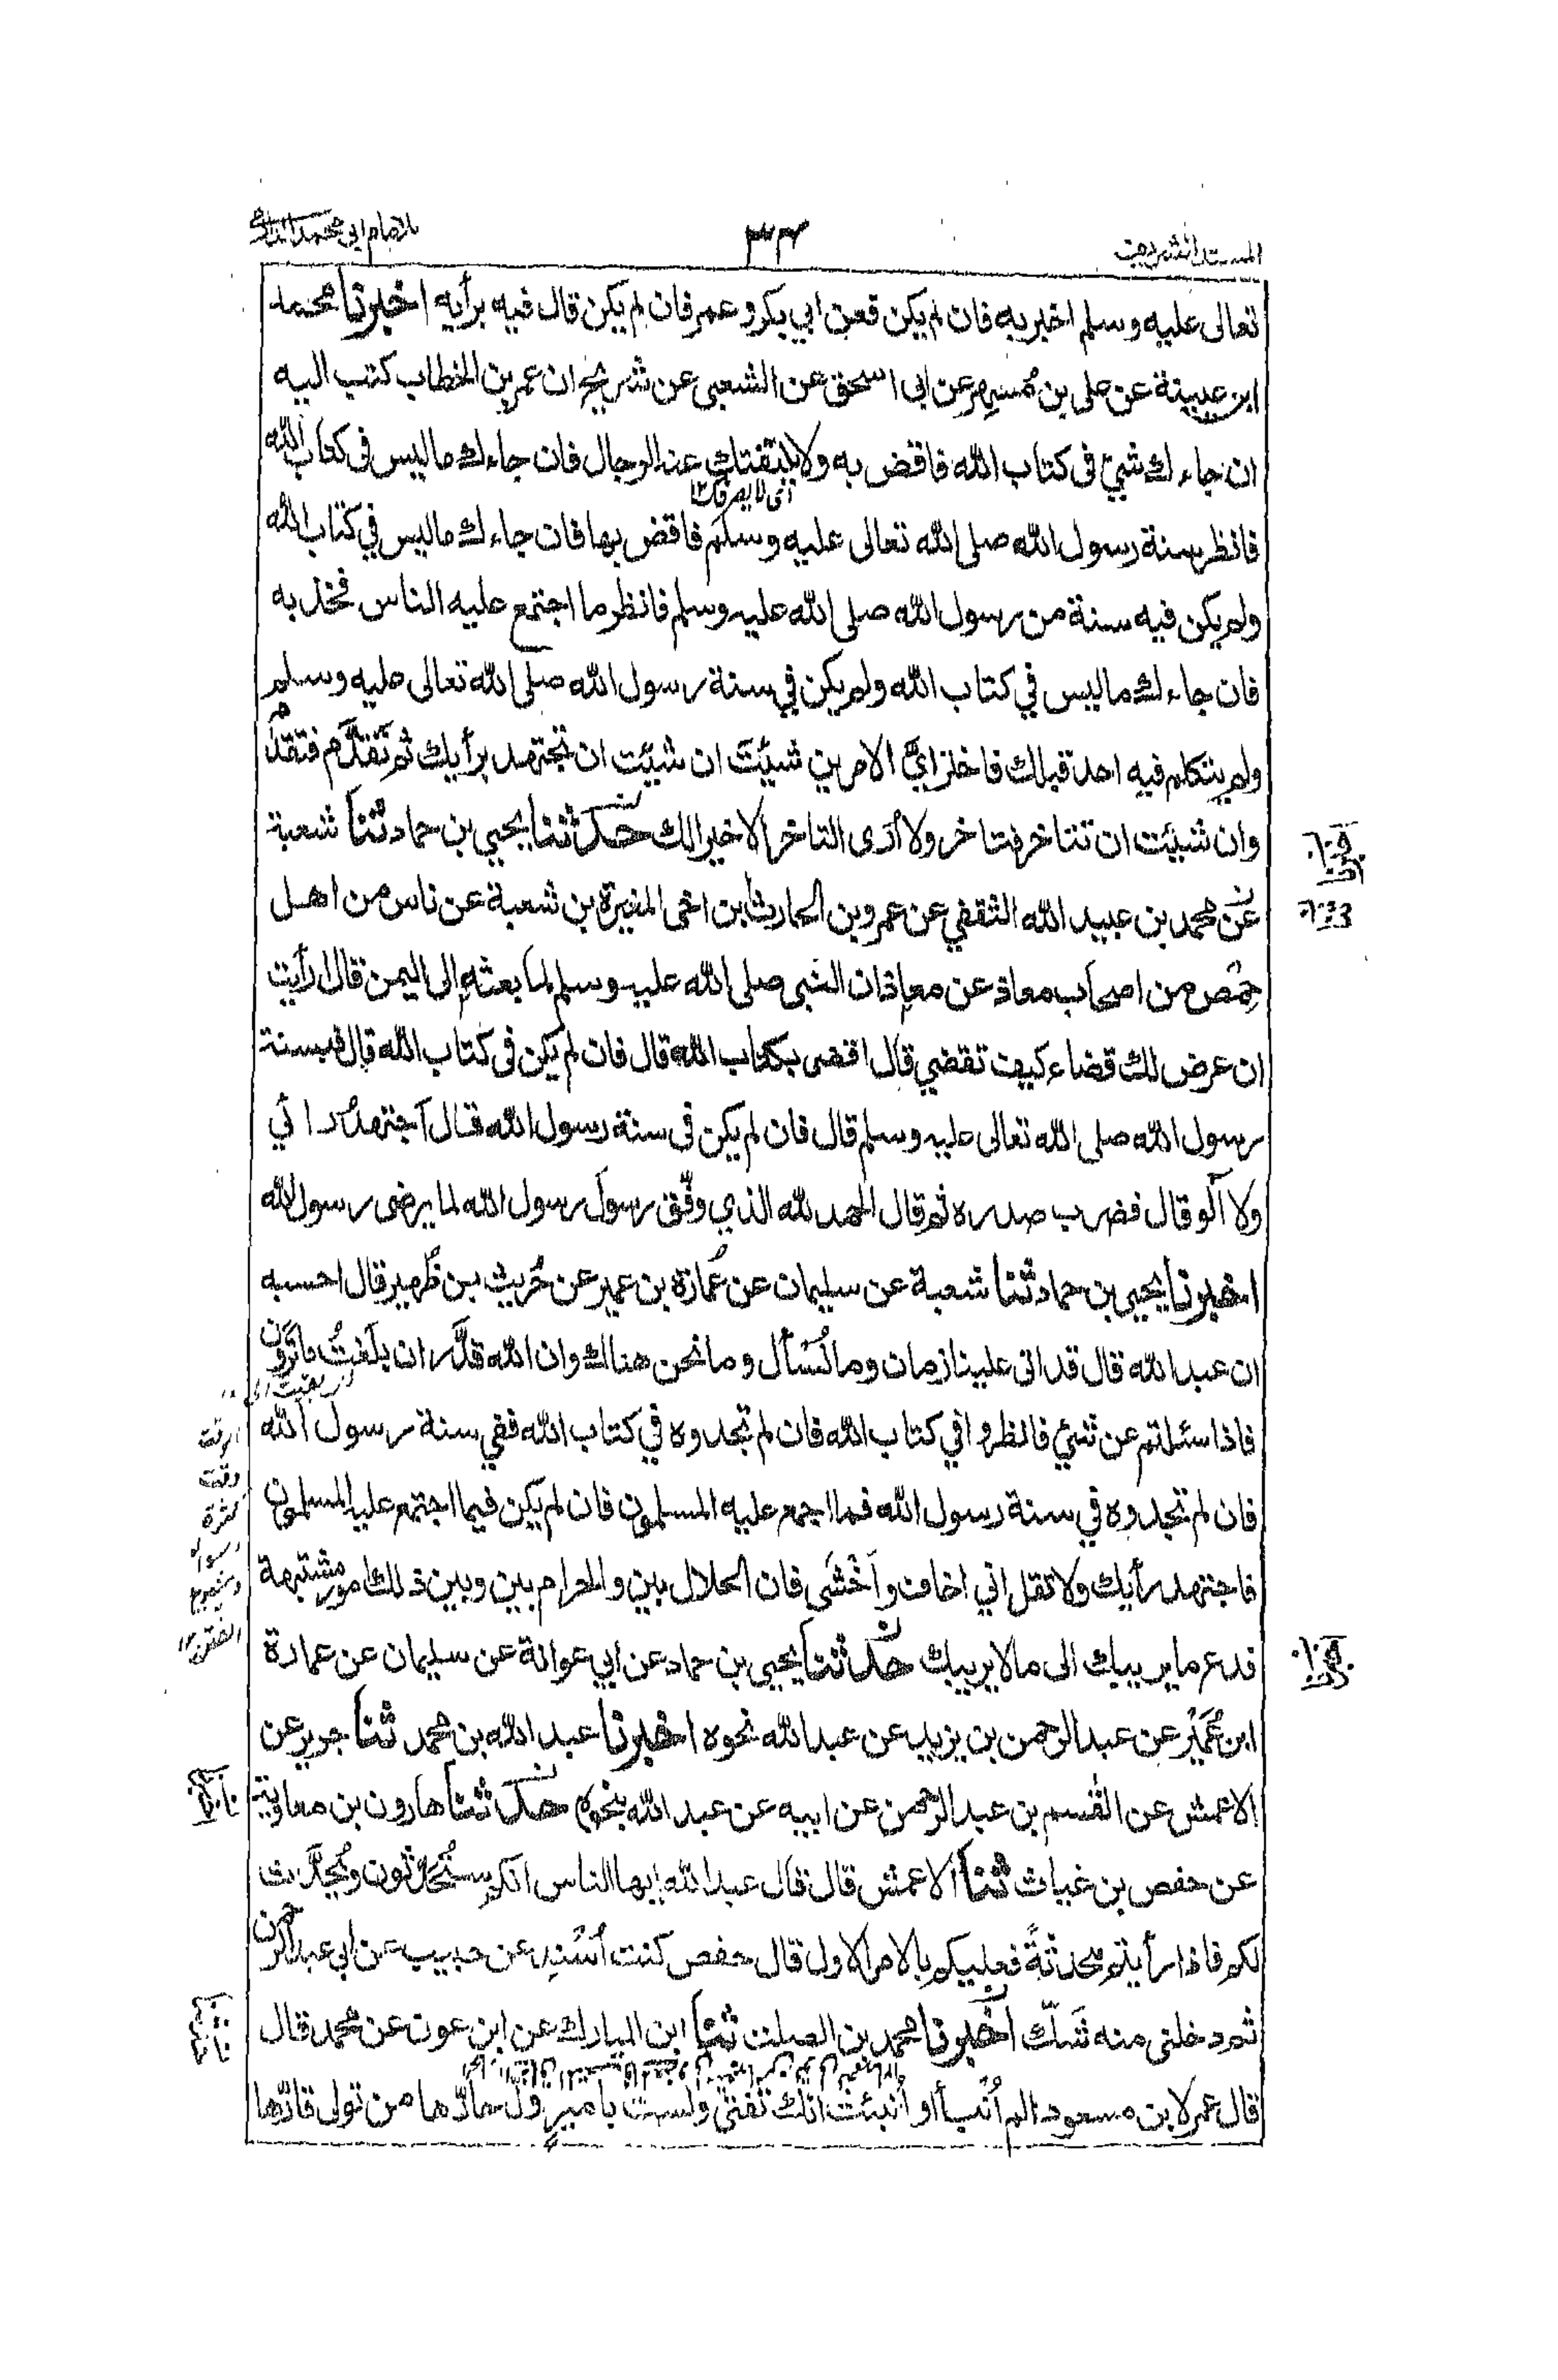 المسند الشريف
٣٤
للامام ابي محمد الدارمي
تعالى عليه وسلم اخبر به فان لم يكن فعن ابي بكر و عمر فان لم يكن قال فيه برأيه اخبرنا محمد
ابن عيينة عن علي بن مُسهر عن ابي اسحق عن الشعبي عن شريح ان عمر بن الخطاب كتب اليه
ان جاءك شيئ في كتاب الله فاقض به ولا يلتفتنك عنه الرجال فان جاءك ما ليس في كتاب الله
اي لا يصرفك ١٢
فانظر سنة رسول الله صلى الله تعالى عليه وسلم فاقض بها فان جاءك ما ليس في كتاب الله
ولم يكن فيه سنة من رسول الله صلى الله عليه وسلم فانظر ما اجتمع عليه الناس فخذ به
فان جاءك ما ليس في كتاب الله ولم يكن في سنة رسول الله صلى الله تعالى عليه وسلم
ولم يتكلم فيه احد قبلك فاختر ايَّ الامرين شئتَ ان شئت ان تجتهد برأيك ثم تَقَدَّم فتقدَّم
وان شئت ان تتاخر فتاخر ولا أرى التاخر الا خيرا لك حدثنا يحيى بن حماد ثنا شعبة
عن محمد بن عبيد الله الثقفي عن عمرو بن الحارث ابن اخي المغيرة بن شعبة عن ناس من اهل
حِمْص من اصحاب معاذ عن معاذ ان النبي صلى الله عليه وسلم لما بعثه الى اليمن قال ارأيت
ان عرض لك قضاء كيف تقضي قال اقضي بكتاب الله قال فان لم يكن في كتاب الله قال فبسنة
رسول الله صلى الله تعالى عليه وسلم قال فان لم يكن في سنة رسول الله قال اجتهدُ رائي
ولا آلو قال فضرب صدره ثم قال الحمد لله الذي وفّق رسولَ رسول الله لما يرضى رسول الله
اخبرنا يحيى بن حماد ثنا شعبة عن سليمان عن عُمارة بن عمير عن حُريث بن ظُهير قال احسبه
ان عبد الله قال قد اتى علينا زمان وما نُسْأل وما نحن هنالك وان الله قدَّر ان بلغتُ ما ترون
فاذا سئلتم عن شيئ فانظروا في كتاب الله فان لم تجدوه في كتاب الله ففي سنة رسول الله
فان لم تجدوه في سنة رسول الله فما اجمع عليه المسلمون فان لم يكن فيما اجتمع عليه المسلمون
فاجتهد رأيك ولا تقل اني اخاف و اَخْشَى فان الحلال بين والحرام بين وبين ذلك امور مشتبهة
فدع ما يريبك الى ما لا يريبك حدثنا يحيى بن حماد عن ابي عوانة عن سليمان عن عمارة
ابن عُمَيْر عن عبد الرحمن بن يزيد عن عبد الله نحوه اخبرنا عبد الله بن محمد ثنا جرير عن
الاعمش عن القسم بن عبد الرحمن عن ابيه عن عبد الله بنحوه حدثنا هارون بن معاوية
عن حفص بن غياث ثنا الاعمش قال قال عبد الله ايها الناس انكم ستُحَدِّثون ويُحدَّث
لكم فاذا رأيتم محدثةً فعليكم بالامر الاول قال حفص كنت اُسْنِد عن حبيب عن ابي عبد الرحمن
ثم دخلني منه شَكّ اخبرنا محمد بن الصلت ثنا ابن المبارك عن ابن عون عن محمد قال
قال عمر لابن مسعود الم اُنبأ او اُنبئت انك تفتي ولست بامير ولِّ حارّها من تولى قارّها
الوقت
وقت
كثرة